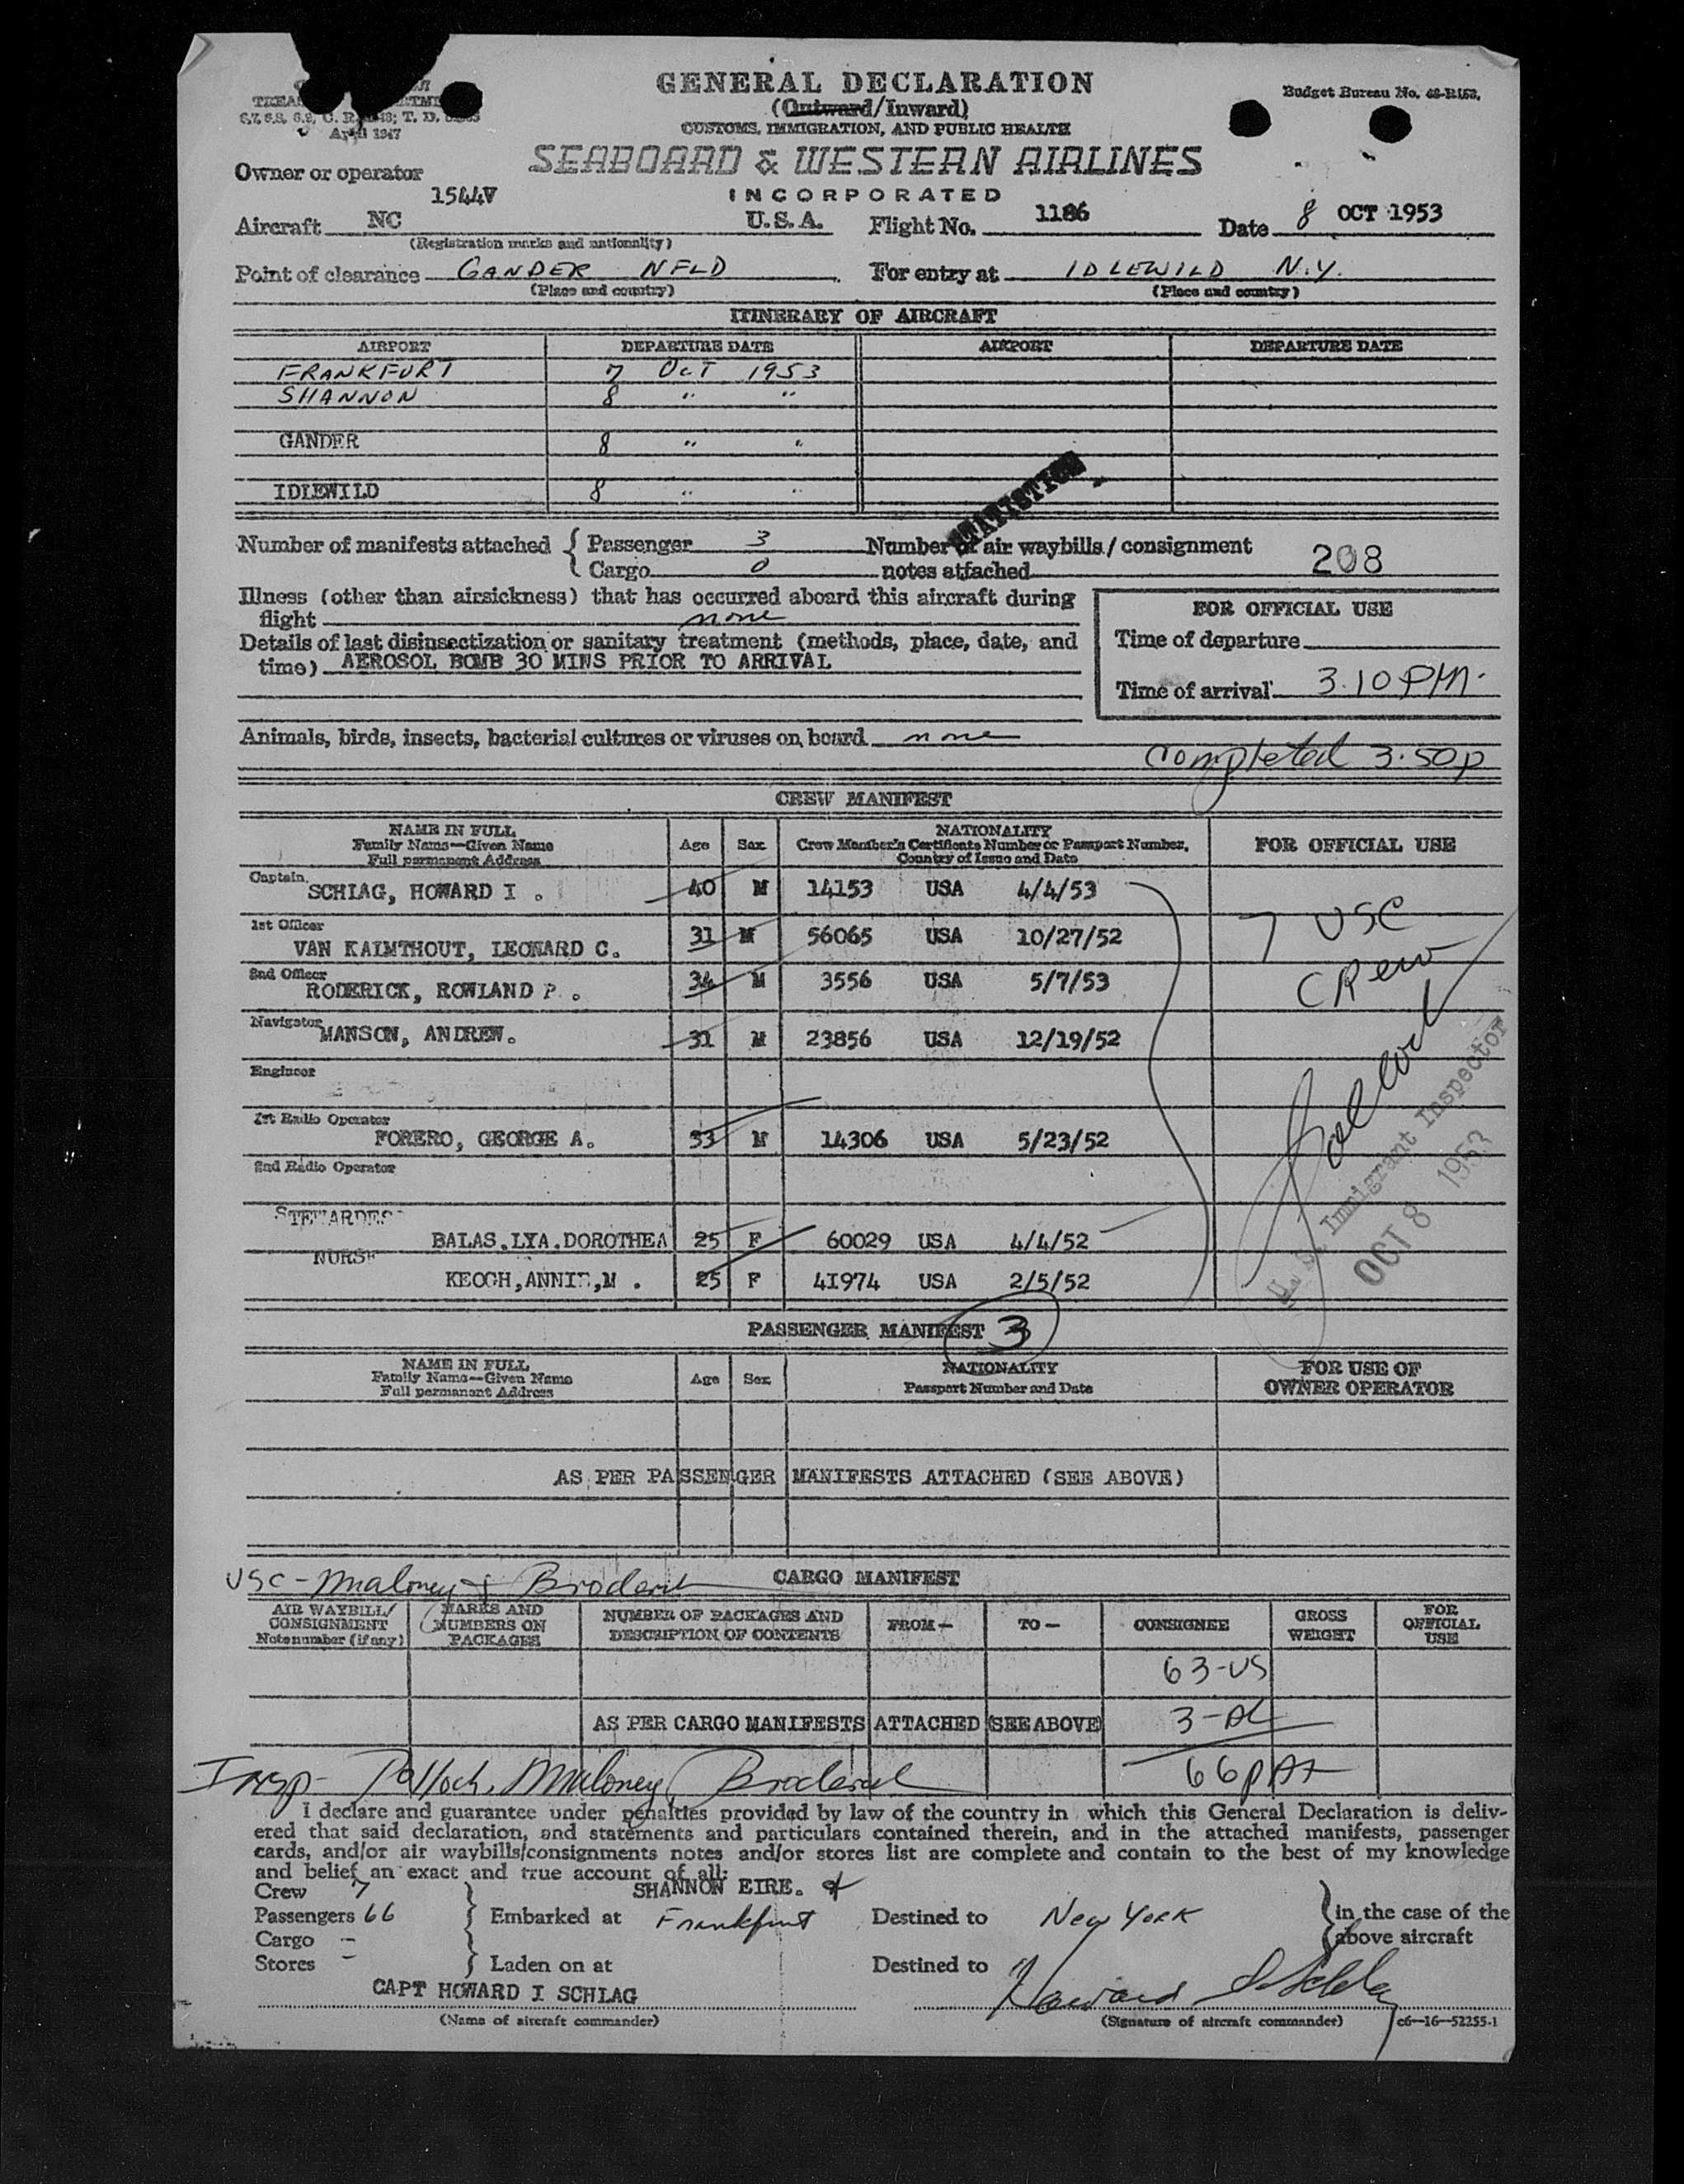 GENERAL DECLARATION
(Outward/Inward)
CUSTOMS, IMMIGRATION, AND PUBLIC HEALTH
Budget Bureau No.
April 1947
SEABOARD & WESTERN AIRLINES
INCORPORATED
Owner or operator
1544V
Aircraft NC U.S.A. Flight No. 1186 Date 8 OCT 1953
(Registration marks and nationality)
Point of clearance GANDER NFLD For entry at IDLEWILD N.Y.
(Place and country) (Place and country)
ITINERARY OF AIRCRAFT
AIRPORT DEPARTURE DATE AIRPORT DEPARTURE DATE
FRANKFURT 7 OCT 1953
SHANNON 8 " "
GANDER 8 " "
IDLEWILD 8 " "
STATISTICS
Number of manifests attached { Passenger 3 Number of air waybills / consignment
Cargo 0 notes attached 208
Illness (other than airsickness) that has occurred aboard this aircraft during
flight none
Details of last disinsectization or sanitary treatment (methods, place, date, and
time) AEROSOL BOMB 30 MINS PRIOR TO ARRIVAL
FOR OFFICIAL USE
Time of departure
Time of arrival 3.10 PM.
Animals, birds, insects, bacterial cultures or viruses on board none
Completed 3.50p
CREW MANIFEST
NAME IN FULL
Family Name—Given Name
Full permanent Address
Age Sex
NATIONALITY
Crew Member's Certificate Number or Passport Number,
Country of Issue and Date
FOR OFFICIAL USE
Captain
SCHLAG, HOWARD I . 40 M 14153 USA 4/4/53
1st Officer
VAN KAIMTHOUT, LEONARD C. 31 M 56065 USA 10/27/52
2nd Officer
RODERICK, ROWLAND P . 34 M 3556 USA 5/7/53
Navigator
MANSON, ANDREW. 31 M 23856 USA 12/19/52
Engineer
1st Radio Operator
FORERO, GEORGE A. 33 M 14306 USA 5/23/52
2nd Radio Operator
STEWARDESS
BALAS.LYA.DOROTHEA 25 F 60029 USA 4/4/52
NURSE
KEOGH,ANNIE,M . 25 F 41974 USA 2/5/52
7 USC
Crew
U.S. Immigrant Inspector
OCT 8 1953
PASSENGER MANIFEST 3
NAME IN FULL
Family Name—Given Name
Full permanent Address
Age Sex
NATIONALITY
Passport Number and Date
FOR USE OF
OWNER OPERATOR
AS PER PASSENGER MANIFESTS ATTACHED (SEE ABOVE)
USC - Maloney & Broderick
CARGO MANIFEST
AIR WAYBILL/
CONSIGNMENT
Note number (if any)
MARKS AND
NUMBERS ON
PACKAGES
NUMBER OF PACKAGES AND
DESCRIPTION OF CONTENTS
FROM— TO— CONSIGNEE
GROSS
WEIGHT
FOR
OFFICIAL
USE
63-US
AS PER CARGO MANIFESTS ATTACHED (SEE ABOVE) 3-AL
66
Insp- Maloney, Broderick
I declare and guarantee under penalties provided by law of the country in which this General Declaration is deliv-
ered that said declaration, and statements and particulars contained therein, and in the attached manifests, passenger
cards, and/or air waybills/consignments notes and/or stores list are complete and contain to the best of my knowledge
and belief an exact and true account of all:
Crew 7 SHANNON EIRE. &
Passengers 66 } Embarked at Frankfurt Destined to New York } in the case of the
Cargo - above aircraft
Stores - } Laden on at Destined to
CAPT HOWARD I SCHLAG Howard I Schlag
(Name of aircraft commander) (Signature of aircraft commander) c6—16—52255-1